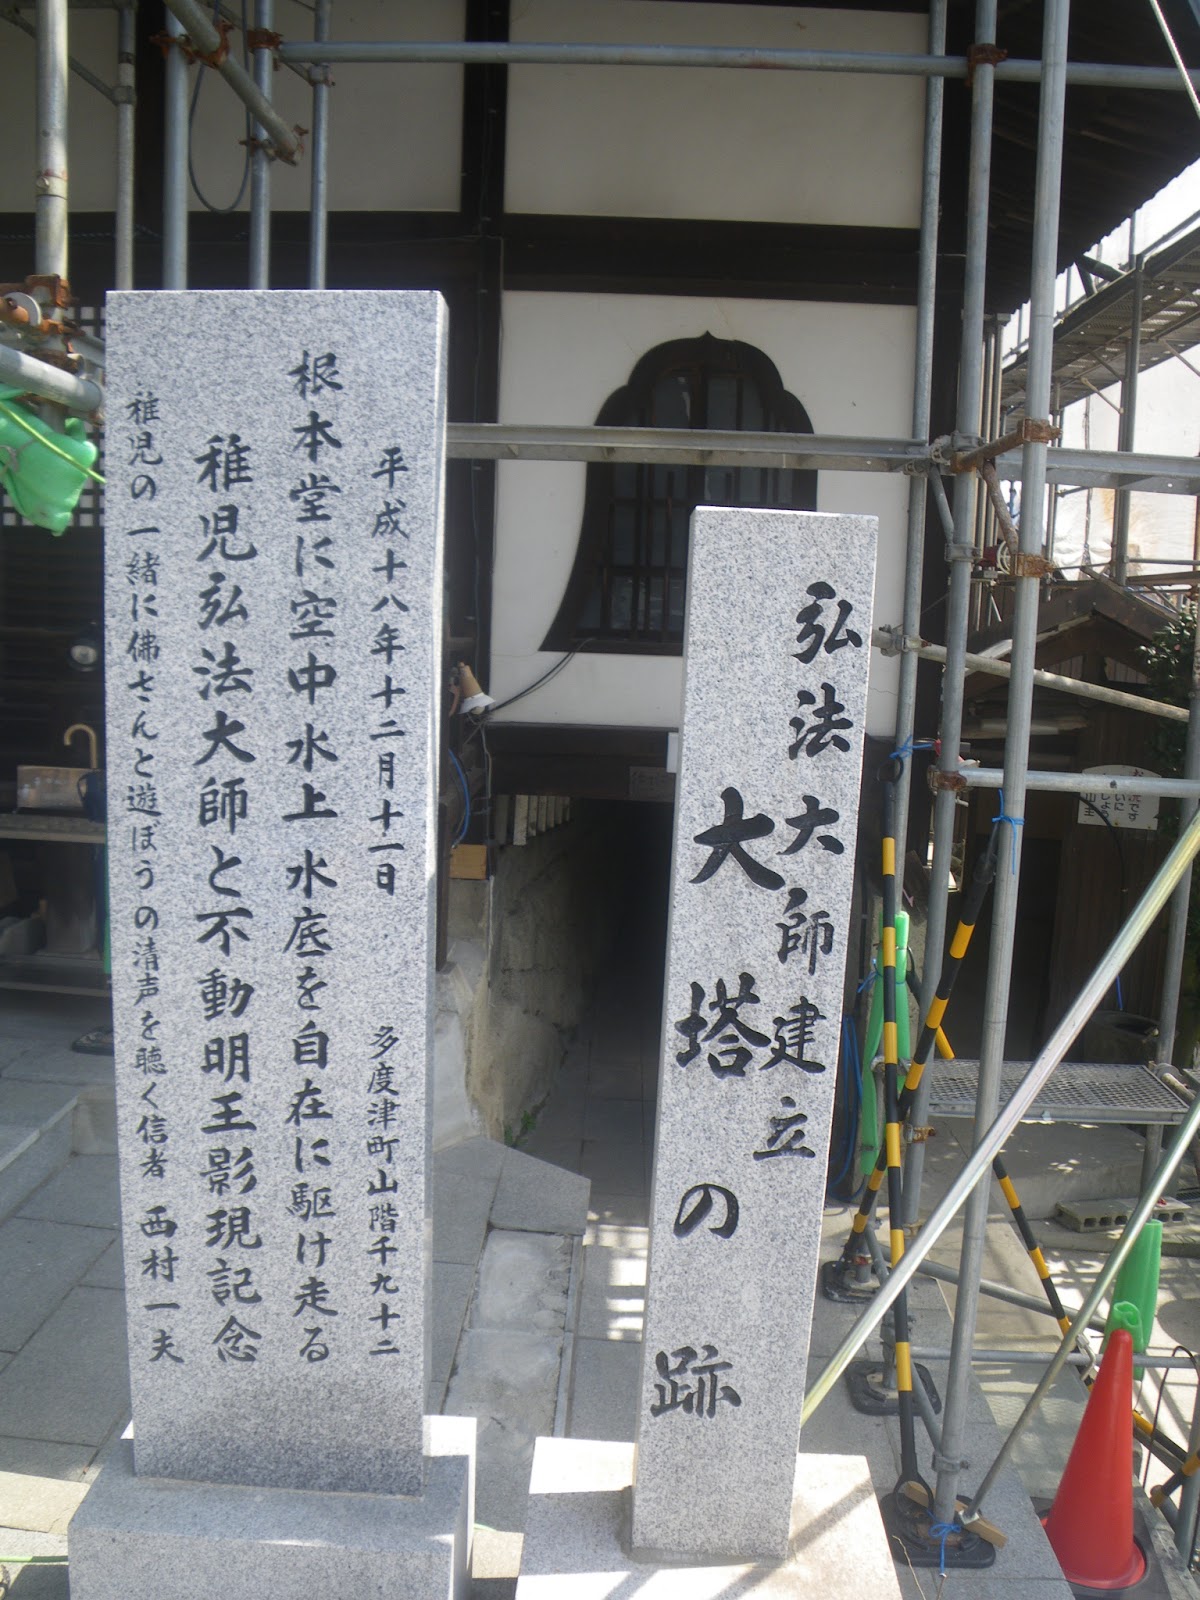 平成十八年十二月十一日 多度津町山階千九十二
根本堂に空中水上水底を自在に駆け走る
稚児弘法大師と不動明王影現記念
稚児の一緒に佛さんと遊ぼうの清声を聴く信者 西村一夫
弘法大師建立
大塔の跡